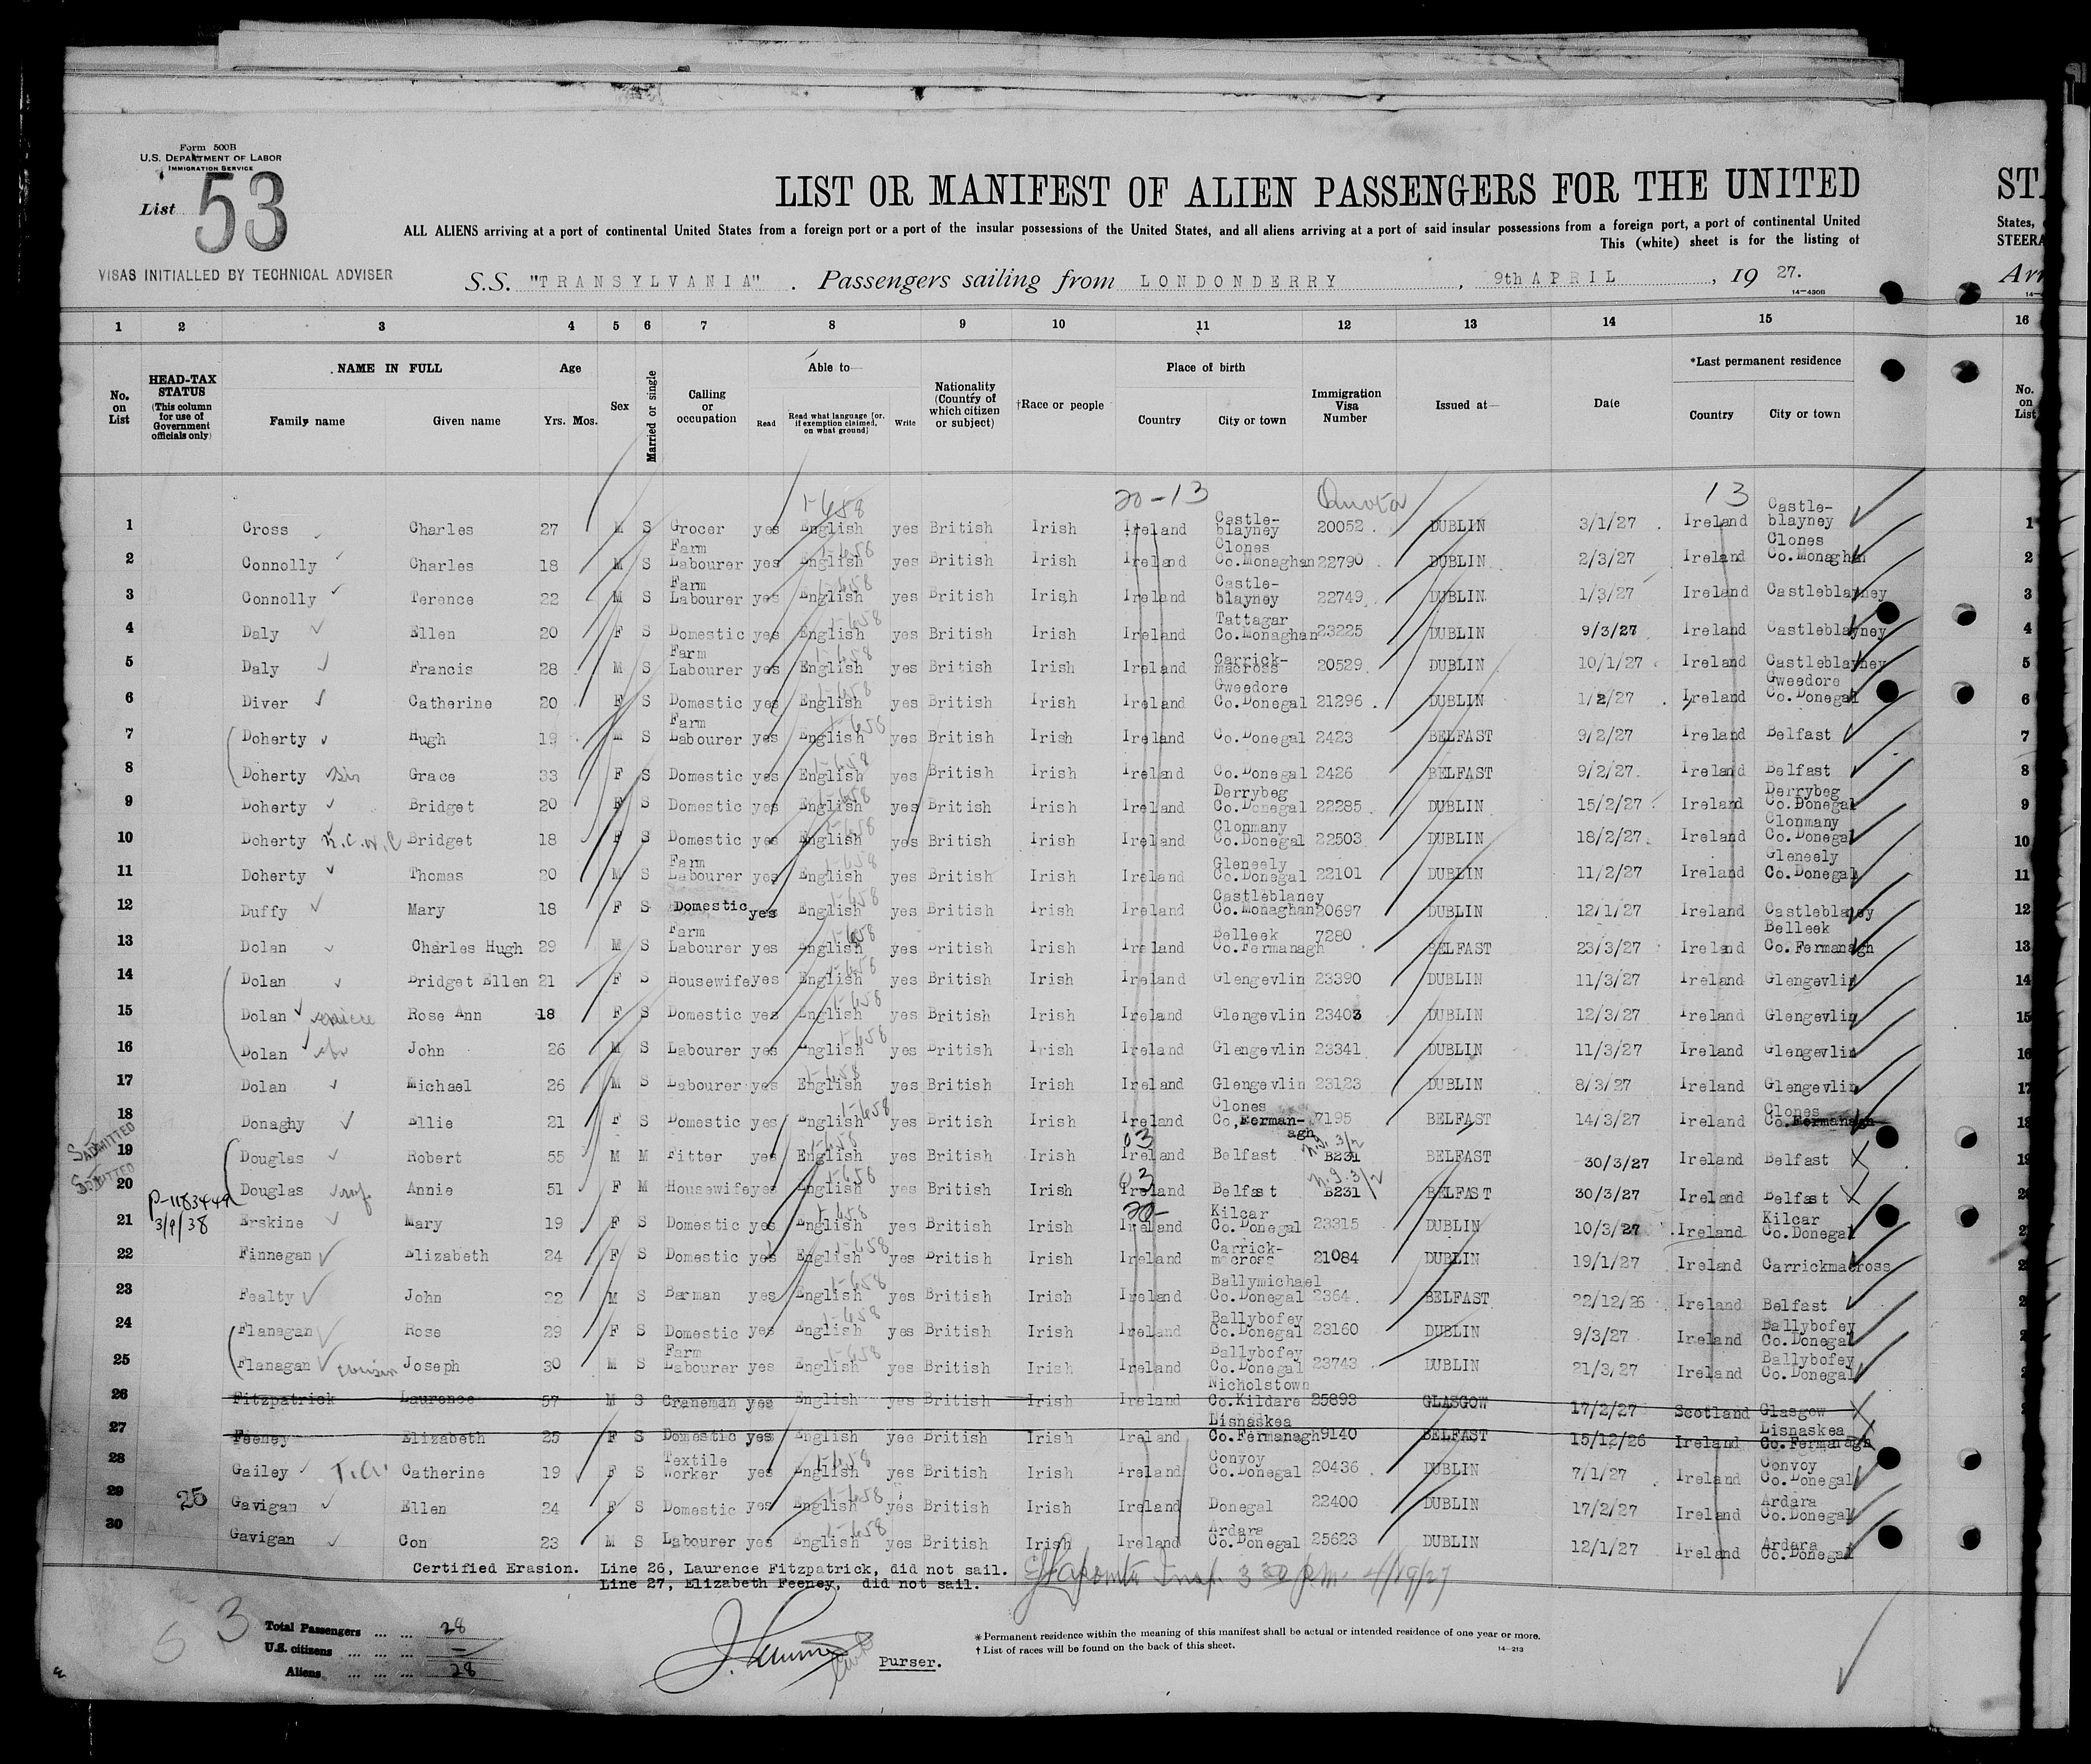 Form 500B
U.S. DEPARTMENT OF LABOR
IMMIGRATION SERVICE
List 53
LIST OR MANIFEST OF ALIEN PASSENGERS FOR THE UNITED
ST
ALL ALIENS arriving at a port of continental United States from a foreign port or a port of the insular possessions of the United States, and all aliens arriving at a port of said insular possessions from a foreign port, a port of continental United
States,
This (white) sheet is for the listing of
STEERA
VISAS INITIALLED BY TECHNICAL ADVISER
S.S. "TRANSYLVANIA". Passengers sailing from LONDONDERRY, 9th APRIL, 19 27.
Arr
14—430B
1 2 3 4 5 6 7 8 9 10 11 12 13 14 15 16
No. on List
HEAD-TAX STATUS (This column for use of Government officials only)
NAME IN FULL
Family name
Given name
Age
Yrs. Mos.
Sex
Married or single
Calling or occupation
Able to—
Read
Read what language [or, if exemption claimed, on what ground]
Write
Nationality (Country of which citizen or subject)
†Race or people
Place of birth
Country
City or town
Immigration Visa Number
Issued at—
Date
*Last permanent residence
Country
City or town
No. on List
1-658 20-13 Quota 13
1 Cross Charles 27 M S Grocer yes English yes British Irish Ireland Castle-blayney 20052 DUBLIN 3/1/27 Ireland Castle-blayney 1
2 Connolly Charles 18 M S Farm Labourer yes English 1-658 yes British Irish Ireland Clones Co.Monaghan 22790 DUBLIN 2/3/27 Ireland Clones Co.Monaghan 2
3 Connolly Terence 22 M S Farm Labourer yes English 1-658 yes British Irish Ireland Castle-blayney 22749 DUBLIN 1/3/27 Ireland Castleblayney 3
4 Daly Ellen 20 F S Domestic yes English 1-658 yes British Irish Ireland Tattagar Co.Monaghan 23225 DUBLIN 9/3/27 Ireland Castleblayney 4
5 Daly Francis 28 M S Farm Labourer yes English 1-658 yes British Irish Ireland Carrick-macross 20529 DUBLIN 10/1/27 Ireland Castleblayney 5
6 Diver Catherine 20 F S Domestic yes English 1-658 yes British Irish Ireland Gweedore Co.Donegal 21296 DUBLIN 1/2/27 Ireland Gweedore Co.Donegal 6
7 Doherty Hugh 19 M S Farm Labourer yes English 1-658 yes British Irish Ireland Co.Donegal 2423 BELFAST 9/2/27 Ireland Belfast 7
8 Doherty Sis Grace 33 F S Domestic yes English 1-658 yes British Irish Ireland Co.Donegal 2426 BELFAST 9/2/27 Ireland Belfast 8
9 Doherty Bridget 20 F S Domestic yes English 1-658 yes British Irish Ireland Derrybeg Co.Donegal 22285 DUBLIN 15/2/27 Ireland Derrybeg Co.Donegal 9
10 Doherty Bridget 18 F S Domestic yes English 1-658 yes British Irish Ireland Clonmany Co.Donegal 22503 DUBLIN 18/2/27 Ireland Clonmany Co.Donegal 10
11 Doherty Thomas 20 M S Farm Labourer yes English 1-658 yes British Irish Ireland Gleneely Co.Donegal 22101 DUBLIN 11/2/27 Ireland Gleneely Co.Donegal 11
12 Duffy Mary 18 F S Domestic yes English 1-658 yes British Irish Ireland Castleblaney Co.Monaghan 20697 DUBLIN 12/1/27 Ireland Castleblaney 12
13 Dolan Charles Hugh 29 M S Farm Labourer yes English 1-658 yes British Irish Ireland Belleek Co.Fermanagh 7280 BELFAST 23/3/27 Ireland Belleek Co.Fermanagh 13
14 Dolan Bridget Ellen 21 F S Housewife yes English 1-658 yes British Irish Ireland Glengevlin 23390 DUBLIN 11/3/27 Ireland Glengevlin 14
15 Dolan Rose Ann 18 F S Domestic yes English 1-658 yes British Irish Ireland Glengevlin 23403 DUBLIN 12/3/27 Ireland Glengevlin 15
16 Dolan John 26 M S Labourer yes English 1-658 yes British Irish Ireland Glengevlin 23341 DUBLIN 11/3/27 Ireland Glengevlin 16
17 Dolan Michael 26 M S Labourer yes English 1-658 yes British Irish Ireland Glengevlin 23123 DUBLIN 8/3/27 Ireland Glengevlin 17
18 Donaghy Ellie 21 F S Domestic yes English 1-658 yes British Irish Ireland Clones Co,Ferman-agh 7195 BELFAST 14/3/27 Ireland Clones Co.Fermanagh 18
ADMITTED
19 Douglas Robert 55 M M Fitter yes English 1-658 yes British Irish Ireland 03 Belfast B231 BELFAST 30/3/27 Ireland Belfast 19
20 Douglas Annie 51 F M Housewife yes English 1-658 yes British Irish Ireland 03 Belfast B231 BELFAST 30/3/27 Ireland Belfast
P-1183449
3/9/38
21 Erskine Mary 19 F S Domestic yes English 1-658 yes British Irish Ireland 20- Kilcar Co.Donegal 23315 DUBLIN 10/3/27 Ireland Kilcar Co.Donegal
22 Finnegan Elizabeth 24 F S Domestic yes English 1-658 yes British Irish Ireland Carrick-macross 21084 DUBLIN 19/1/27 Ireland Carrickmacross
23 Fealty John 22 M S Barman yes English 1-658 yes British Irish Ireland Ballymichael Co.Donegal 2364 BELFAST 22/12/26 Ireland Belfast
24 Flanagan Rose 29 F S Domestic yes English 1-658 yes British Irish Ireland Ballybofey Co.Donegal 23160 DUBLIN 9/3/27 Ireland Ballybofey Co.Donegal
25 Flanagan cousin Joseph 30 M S Farm Labourer yes English 1-658 yes British Irish Ireland Ballybofey Co.Donegal 23743 DUBLIN 21/3/27 Ireland Ballybofey Co.Donegal
26 Fitzpatrick Laurence 57 M S Craneman yes English yes British Irish Ireland Nicholstown Co.Kildare 25893 GLASGOW 17/2/27 Scotland Glasgow
27 Feeney Elizabeth 25 F S Domestic yes English yes British Irish Ireland Lisnaskea Co.Fermanagh 9140 BELFAST 15/12/26 Ireland Lisnaskea Co.Fermanagh
28 Gailey Catherine 19 F S Textile Worker yes English 1-658 yes British Irish Ireland Convoy Co.Donegal 20436 DUBLIN 7/1/27 Ireland Convoy Co.Donegal
29 25 Gavigan Ellen 24 F S Domestic yes English 1-658 yes British Irish Ireland Donegal 22400 DUBLIN 17/2/27 Ireland Ardara Co.Donegal
30 Gavigan Con 23 M S Labourer yes English 1-658 yes British Irish Ireland Ardara Co.Donegal 25623 DUBLIN 12/1/27 Ireland Ardara Co.Donegal
Certified Erasion. Line 26, Laurence Fitzpatrick, did not sail.
Line 27, Elizabeth Feeney, did not sail.
Insp. 3 30 p.m. 4/19/27
53
Total Passengers ... ... 28
U.S. citizens ... ... ... —
Aliens ... ... ... 28
Purser.
* Permanent residence within the meaning of this manifest shall be actual or intended residence of one year or more.
† List of races will be found on the back of this sheet.
14—213